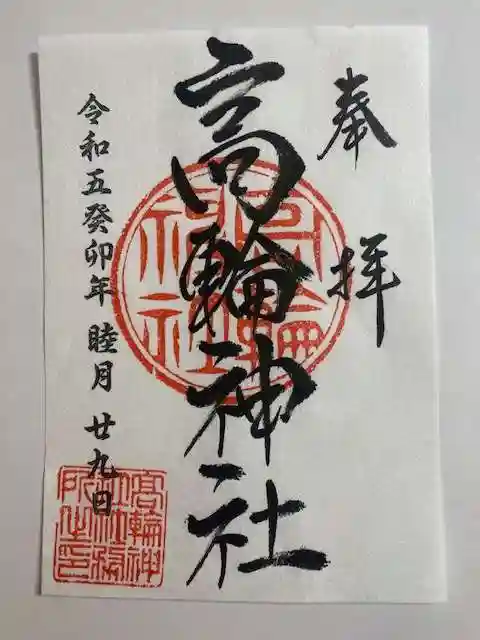 奉拝
高輪神社
令和五癸卯年 睦月 廿九日
高輪神社
高輪神社社務所之印